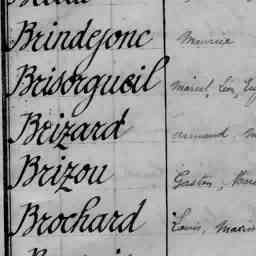 Brindejonc Maurice
Brisorgueil Marcel, Léon,
Brizard Armand,
Brizou Gaston,
Brochard Louis, Marie